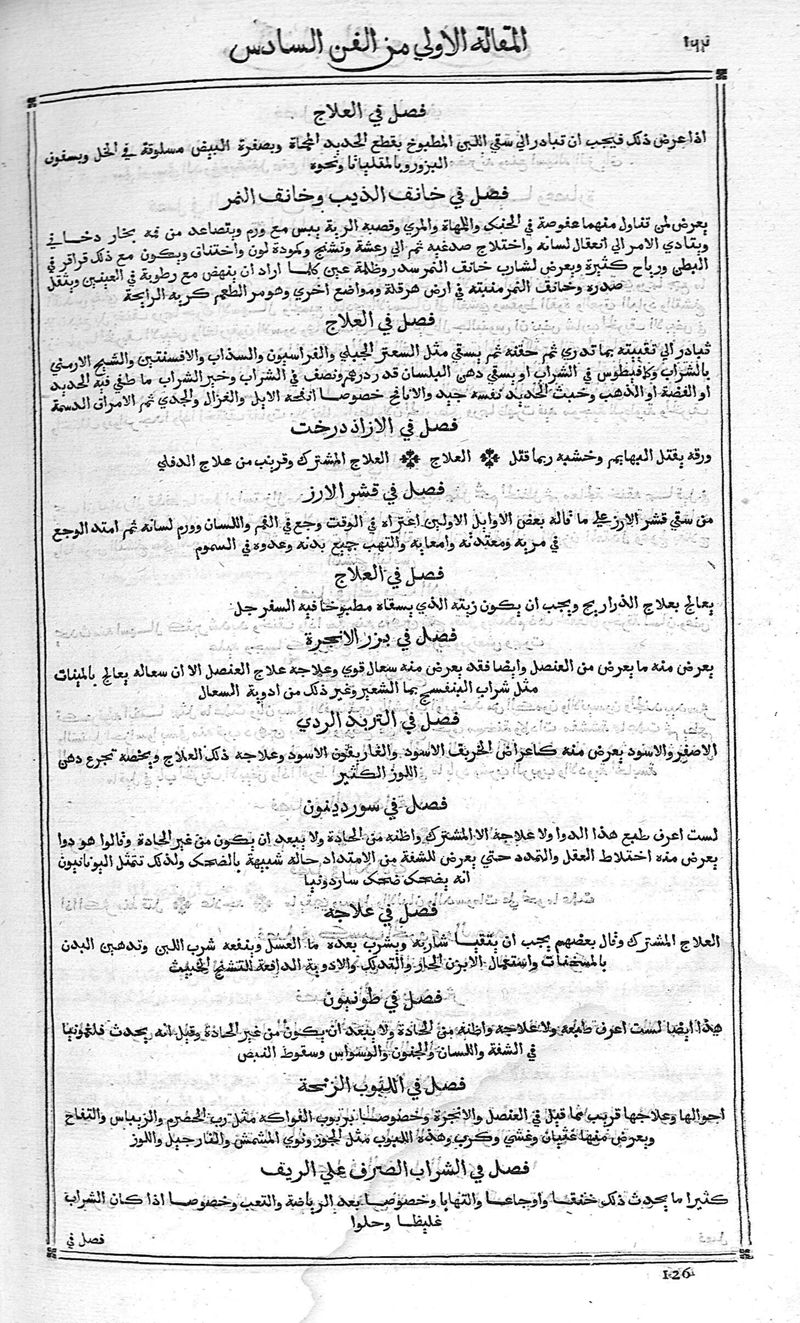 ١٤٢
المقالة الاولي من الفن السادس
فصل في العلاج
اذا عرض ذلك فيجب ان تبادر الي سقي اللبن المطبوخ بقطع الحديد المحماة وبصفرة البيض مسلوقة في الخل ويسفون
البزور وبالمقلياثا ونحوه
فصل في خانف الذيب وخانف النمر
يعرض لمن تناول منهما عفوصة في الحنك واللهاة والمري وقصبة الرية يبس مع ورم ويتصاعد من فمه بخار دخاني
ويتادي الامر الي انعقال لسانه واختلاج صدغيه ثم الي رعشة وتشنج وكمودة لون واختناق ويكون مع ذلك قراقر في
البطن ورياح كثيرة ويعرض لشارب خانف النمر سدر وظلمة عين كلما اراد ان ينهض مع رطوبة في العينين ويثقل
صدره وخانف النمر منبته في ارض هرقلة ومواضع اخري وهو مر الطعم كريه الرايحة
فصل في العلاج
تبادر الي تقييته بما تدري ثم حقنه ثم يسقي مثل السعتر الجبلي والفراسيون والسذاب والافسنتين والشيح الارمني
بالشراب وكمافيطوس في الشراب او يسقي دهن البلسان قدر درهم ونصف في الشراب وخير الشراب ما طفي فيه الحديد
او الفضة او الذهب وخبث الحديد نفسه جيد والانافح خصوصا انفحة الايل والغزال والجدي ثم الامراق الدسمة
فصل في الازاددرخت
ورقه يقتل البهايم وخشبه ربما قتل ❋ العلاج ❋ العلاج المشترك وقريب من علاج الدفلي
فصل في قشر الارز
من سقي قشر الارز علي ما قاله بعض الاوايل الاولين اعتراه في الوقت وجع في الفم واللسان وورم لسانه ثم امتد الوجع
في مريه ومعتدنه وامعايه والتهب جميع بدنه وعدوه في السموم
فصل في العلاج
يعالج بعلاج الذراريح ويجب ان يكون زيته الذي يسقاه مطبوخا فيه السفرجل
فصل في بزر الانجرة
يعرض منه ما يعرض من العنصل وايضا فقد يعرض منه سعال قوي وعلاجه علاج العنصل الا ان سعاله يعالج بالمينات
مثل شراب البنفسج بما الشعير وغير ذلك من ادوية السعال
فصل في التربد الردي
الاصفر والاسود يعرض منه كاعراض الخربق الاسود والغاريقون الاسود وعلاجه ذلك العلاج ويخصه تجرع دهن
اللوز الكثير
فصل في سوردينون
لست اعرف طبع هذا الدوا ولا علاجه الا المشترك واظنه من الحادة ولا يبعد ان يكون من غير الحادة وقالوا هو دوا
يعرض منه اختلاط العقل والتمدد حتي يعرض للشفة من الامتداد حاله شبيهة بالضحك ولذلك تتمثل اليونانيون
انه يضحك ضحك ساردونيا
فصل في علاجه
العلاج المشترك وقال بعضهم يجب ان يتقيا شاربه ويشرب بعده ما العسل وينفعه شرب اللبن وتدهين البدن
بالمسخنات واستعمال الابزن الحار والتدلك والادوية الدافعة للتشنج الخبيث
فصل في طونيون
هذا ايضا لست اعرف طبعه ولا علاجه واظنه من الحادة ولا يبعد ان يكون من غير الحادة وقيل انه يحدث فلغمونيا
في الشفة واللسان والجنون والوسواس وسقوط النبض
فصل في اللبوب الزنخة
احوالها وعلاجها قريب مما قيل في العنصل والانجرة وخصوصا بربوب الفواكه مثل رب الحصرم والريباس والتفاح
ويعرض منها غثيان وغشي وكرب وهذه اللبوب مثل الجوز ونوي المشمش والنارجيل واللوز
فصل في الشراب الصرف علي الريف
كثيرا ما يحدث ذلك خنقا واوجاعا والتهابا وخصوصا بعد الرياضة والتعب وخصوصا اذا كان الشراب
غليظا وحلوا
فصل في
126